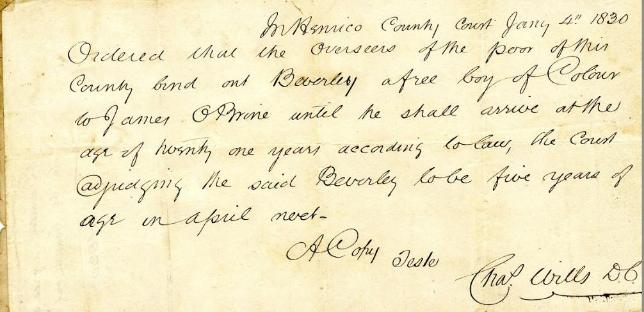 In Henrico County Court Jany 4th 1830
Ordered that the Overseers of the poor of this
County bind out Beverley a free boy of Colour
to James OBrine until he shall arrive at the
age of twenty one years according to law, the Court
adjudging the said Beverley to be five years of
age in april next-
A Copy Teste
Chas. Wills D.C